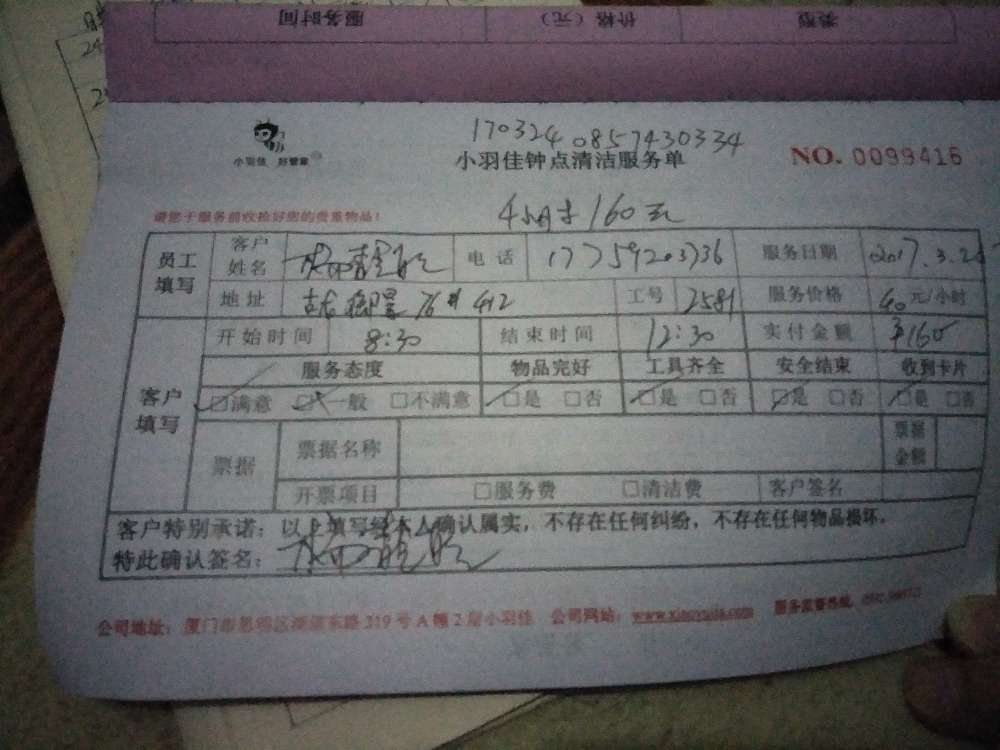 服务时间 价格（元） 类型
170324 0857430334
小羽佳 好管家
小羽佳钟点清洁服务单
NO. 0099416
请您于服务前收检好您的贵重物品！
4小时 160元
员工填写 客户姓名 电话 17759203736 服务日期 2017.3.2
地址 76# 412 工号 2581 服务价格 40元/小时
客户填写 开始时间 8:30 结束时间 12:30 实付金额 ¥160
服务态度 物品完好 工具齐全 安全结束 收到卡片
□满意 □一般 □不满意 □是 □否 □是 □否 □是 □否 □是 □否
票据 票据名称 票据金额
开票项目 □服务费 □清洁费 客户签名
客户特别承诺：以上填写经本人确认属实，不存在任何纠纷，不存在任何物品损坏。
特此确认签名：
公司地址：厦门市思明区湖滨东路319号A幢2层小羽佳 公司网站：www.xiaoyujia.com 服务监督热线